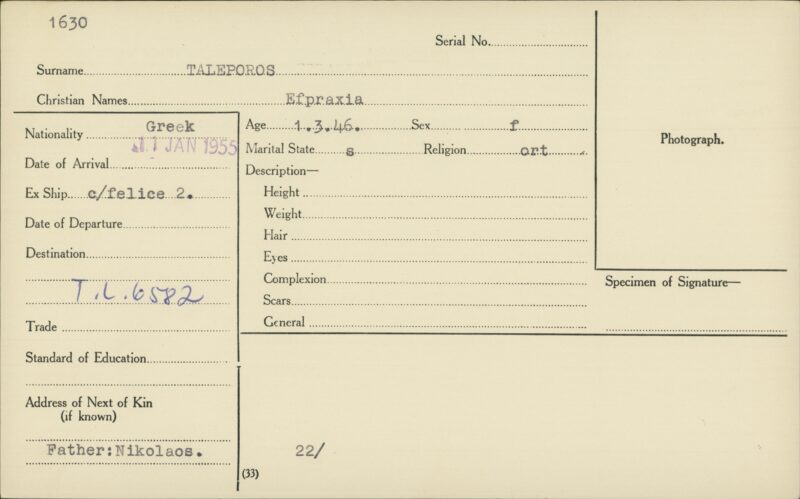 1630
Serial No.
Surname TALEPOROS
Christian Names Efpraxia
Nationality Greek
11 JAN 1955
Date of Arrival
Ex Ship c/felice 2.
Date of Departure
Destination
T.L.6582
Trade
Standard of Education
Address of Next of Kin
(if known)
Father:Nikolaos.
Age 1.3.46. Sex f
Marital State s Religion ort
Description—
Height
Weight
Hair
Eyes
Complexion
Scars
General
22/
(33)
Photograph.
Specimen of Signature—